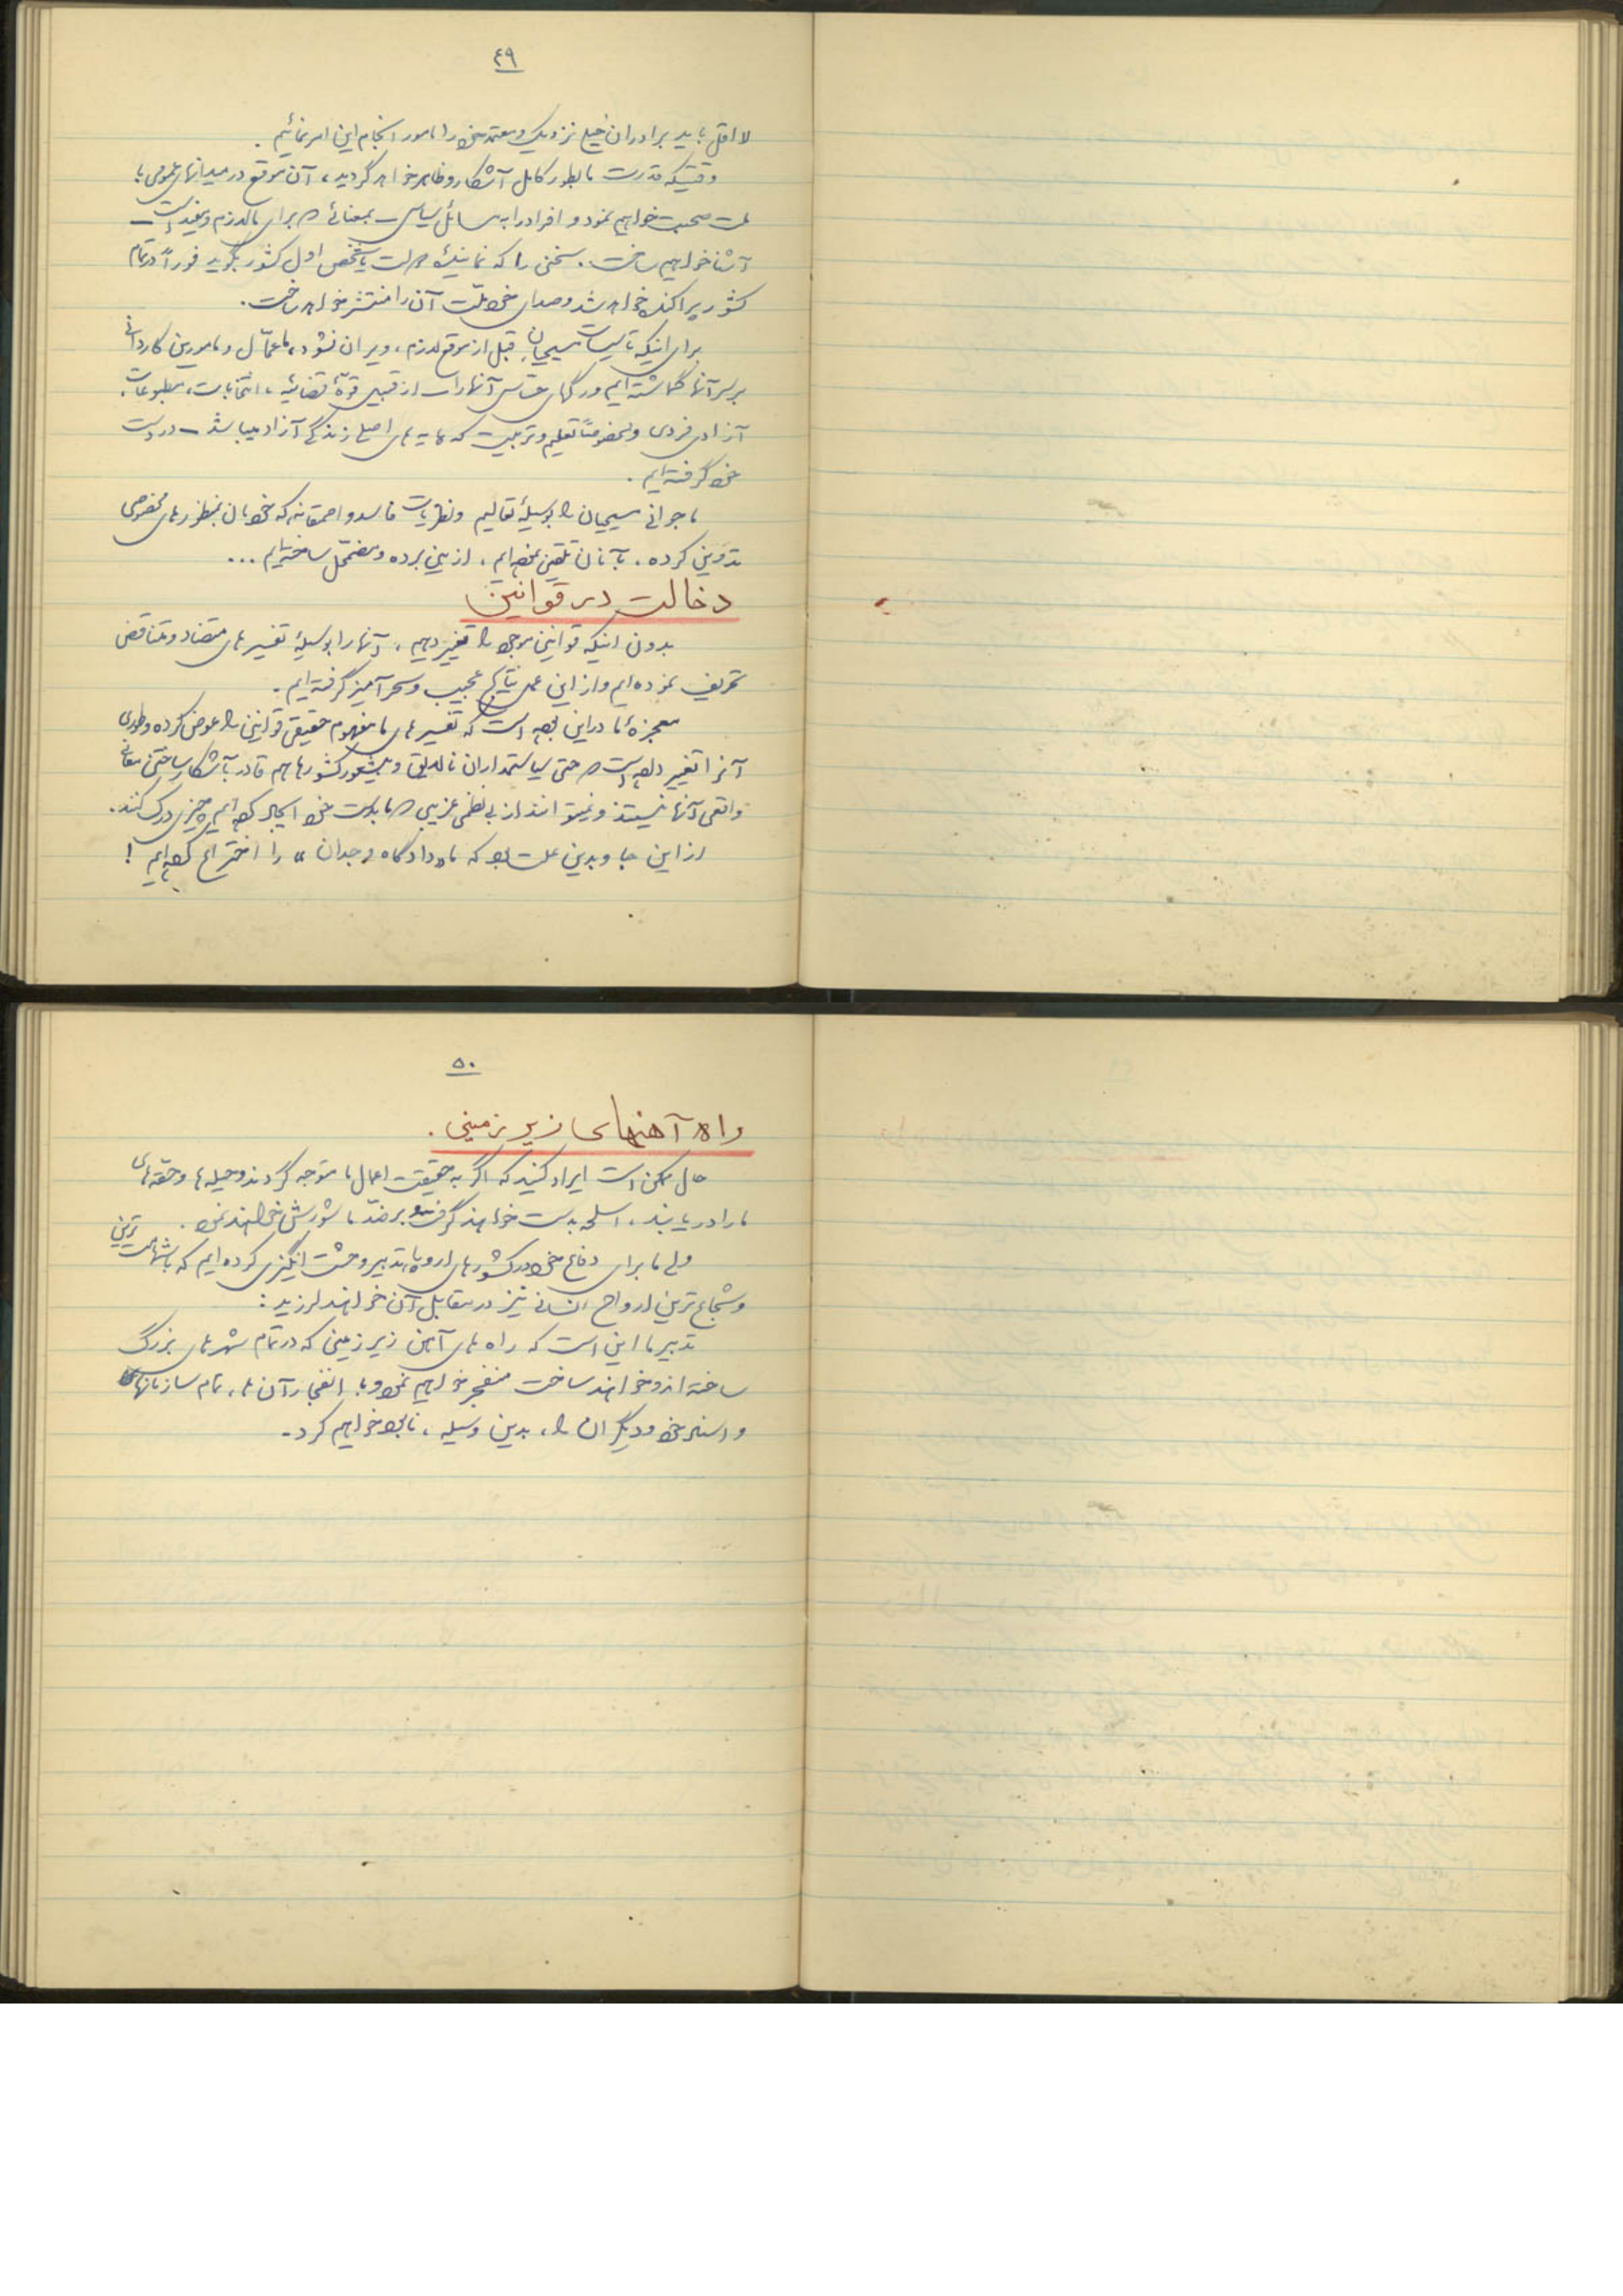 ۴۹
لااقل باید برادران خیلی نزدیک و معتمد خود را مامور انجام این امر نمائیم .
وقتیکه قدرت ما بطور کامل آشکار و ظاهر خواهد گردید ، آن موقع در میدانهای عمومی با
ملت صحبت خواهیم نمود و افراد را به مسائل سیاسی – بمعنائی که برای ما لازم و مفید است –
آشنا خواهیم ساخت . سخنی را که نماینده دولت یا شخص اول کشور بگوید فوراً در تمام
کشور پراکنده خواهد شد و صدای خود ملت آن را منتشر خواهد ساخت .
برای اینکه تاسیسات مسیحیان قبل از موقع لازم ، ویران نشود ، ما عمّال و مامورین کاردانی
بر سر آنها گماشته‌ایم و رگهای حساس آنها را – از قبیل قوّهٔ قضائیه ، انتخابات ، مطبوعات ،
آزادی فردی و بخصوص تعلیم و تربیت که پایه های اصلی زندگی آزاد میباشد – در دست
خود گرفته‌ایم .
ما جوانی مسیحیان را بوسیلهٔ تعالیم و نظریات فاسد و احمقانه که خودمان بمنظورهای مخصوصی
تدوین کرده ، بآنان تلقین نموده‌ایم ، از بین برده و مضمحل ساخته‌ایم ...
دخالت در قوانین
بدون اینکه قوانین موجود را تغییر دهیم ، آنها را بوسیلهٔ تفسیر های متضاد و متناقض
تحریف نموده‌ایم و از این عمل نتایج عجیب و سحرآمیز گرفته‌ایم .
معجزهٔ ما در این بوده است که تفسیر های ما مفهوم حقیقی قوانین را عوض کرده و طوری
آنرا تغییر داده است که حتی سیاستمداران نالایق و بیشعور کشورها هم قادر بآشکار ساختن معانی
واقعی آنها نیستند و نمیتوانند از بی نظمی غریبی که ما بدست خود ایجاد کرده‌ایم چیزی درک کنند .
از این جا و بدین علت بود که ما «دادگاه وجدان» را اختراع کرده‌ایم !
۵۰
راه آهنهای زیر زمینی .
حال ممکن است ایراد کنید که اگر به حقیقت اعمال ما متوجه گردند و حیله ها و حقه های
ما را دریابند ، اسلحه بدست خواهند گرفت و بر ضدّ ما شورش خواهند نمود .
ولی ما برای دفاع خود در کشورهای اروپا ، تدبیر وحشت انگیزی کرده‌ایم که با شهامت ترین
و شجاع ترین ارواح انسانی نیز در مقابل آن خواهند لرزید :
تدبیر ما این است که راه های آهن زیر زمینی که در تمام شهر های بزرگ
ساخته اند و خواهند ساخت منفجر خواهیم نمود و با انفجار آن ها ، تمام سازمانها
و اسناد خود و دیگران را ، بدین وسیله ، نابود خواهیم کرد .